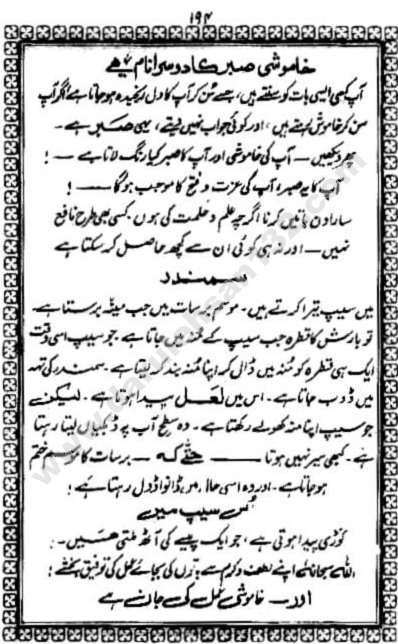 ۱۹۴
خاموشی صبر کا دوسرا نام ہے
آپ کبھی ایسی بات کو سنتے ہیں، جسے سن کر آپ کا دل رنجیدہ ہو جاتا ہے اگر آپ
سن کر خاموش رہتے ہیں، اور کوئی جواب نہیں دیتے، یہی صبر ہے۔
پھر دیکھیں — آپ کی خاموشی اور آپ کا صبر کیا رنگ لاتا ہے —!
آپ کا یہ صبر آپ کی عزت و فتح کا موجب ہوگا —!
سارا دن باتیں کرنا اگرچہ علم و حکمت کی ہوں کسی بھی طرح نافع
نہیں — اور نہ ہی کوئی ان سے کچھ حاصل کر سکتا ہے
سمندر
میں سیپ تیرا کرتے ہیں۔ موسم برسات میں جب مینہ برستا ہے۔
تو بارش کا قطرہ جب سیپ کے منہ میں جاتا ہے۔ جو سیپ اسی وقت
ایک ہی قطرہ کو منہ میں ڈال کر اپنا منہ بند کر لیتا ہے۔ سمندر کی تہہ
میں ڈوب جاتا ہے۔ اس میں لعل پیدا ہوتا ہے۔ لیکن
جو سیپ اپنا منہ کھولے رکھتا ہے۔ وہ سطح آب پہ ڈبکیاں لیتا رہتا
ہے۔ کبھی سیر نہیں ہوتا — حتّٰے کہ — برسات کا موسم ختم
ہو جاتا ہے۔ اور وہ اسی حال میں ڈانواڈول رہتا ہے!
اس سیپ میں
کوڑی پیدا ہوتی ہے، جو ایک پیسے کی آٹھ ملتی ہیں۔
اللہ سبحانہٗ اپنے لطف و کرم سے باتوں کی بجائے عمل کی توفیق بخشے!
اور — خاموشی عمل کی جان ہے
www.darulehsan132.com